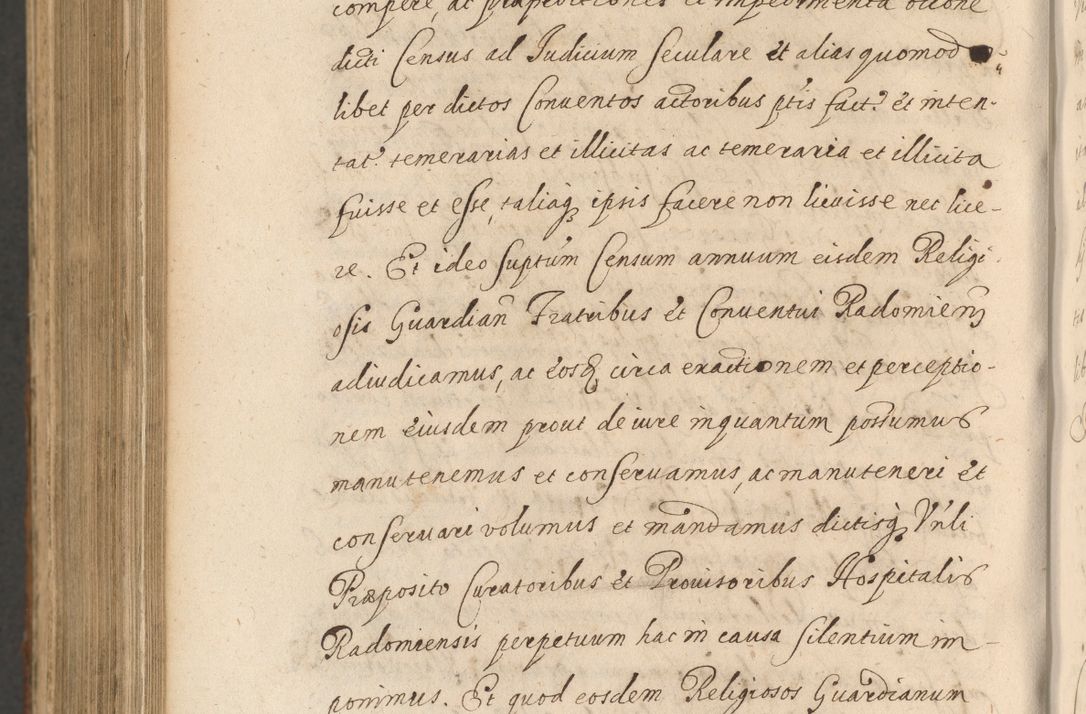 compere, ac præpeditiones et impedimenta occone
dicti Census ad Iudicium seculare et alias quomodo
libet per dictos Conuentos actoribus ptis fact. et inten-
tat. temerarias et illicitas ac temeraria et illicita
fuisse et esse, taliaq ipsis facere non licuisse nec lice-
re. Et ideo suptum Censum annuum eisdem Religi-
osis Guardian Fratribus et Conuentui Radomien
adiudicamus, ac eosq circa exactionem et perceptio-
nem eiusdem prout de iure inquantum possumus
manutenemus et conseruamus, ac manuteneri et
conseruari volumus et mandamus dictisq Vnli
Præposito Curatoribus et Prouisoribus Hospitalis
Radomiensis perpetuum hac in causa silentium im-
ponimus. Et quod eosdem Religiosos Guardianum